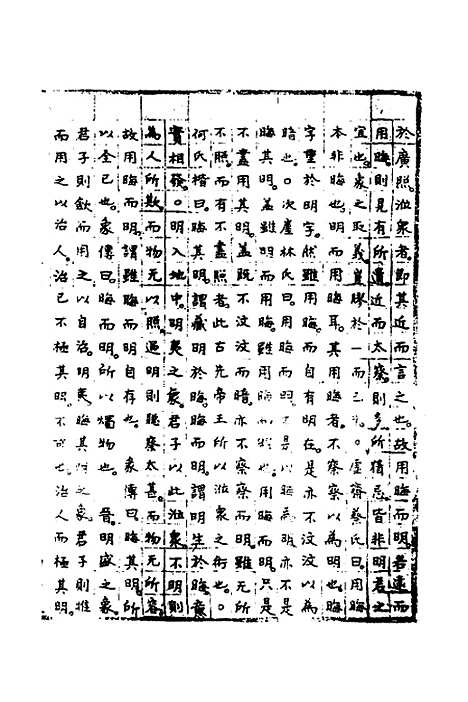 於廣照。涖衆者。即其近而言之也。故用晦而明。若遠而
用晦。則見有所遺。近而太察。則多所猜忌。皆非明君之
宜也。象之取義豈膠於一而已。虛齋蔡氏曰。用晦
本非晦也。明而用晦耳。其用晦者。不察察以為明也。晦
字重於明字。然雖用晦。而自有明在。是亦不汶汶以為
晦也。○次崖林氏曰。用晦而明。不是以晦為明。亦不是
晦其明。蓋雖明而用晦。雖用晦而亦明也。用晦而明。只是
不盡用其明。蓋旣不汶汶而暗。亦不察察而明。雖無所
不照。而有不盡照者。此古先帝王所以涖衆之術也。○
何氏楷曰。晦其明。謂藏明於晦。晦而明。謂明生於晦。意
實相發。○明入地中。明夷之象。君子以此涖衆。不明則
為人所欺。而物无以照。過明則聰察太甚。而物无所容。
故用晦而明。謂雖晦而明自存也。彖傳曰。晦其明。所
以全已也。象傳曰。晦而明。所以燭物也。晉。明盛之象。
君子則飲而用之以自治。明夷晦其明之象。君子則推
而用之以治人。治已不極其明。不可也。治人而極其明。